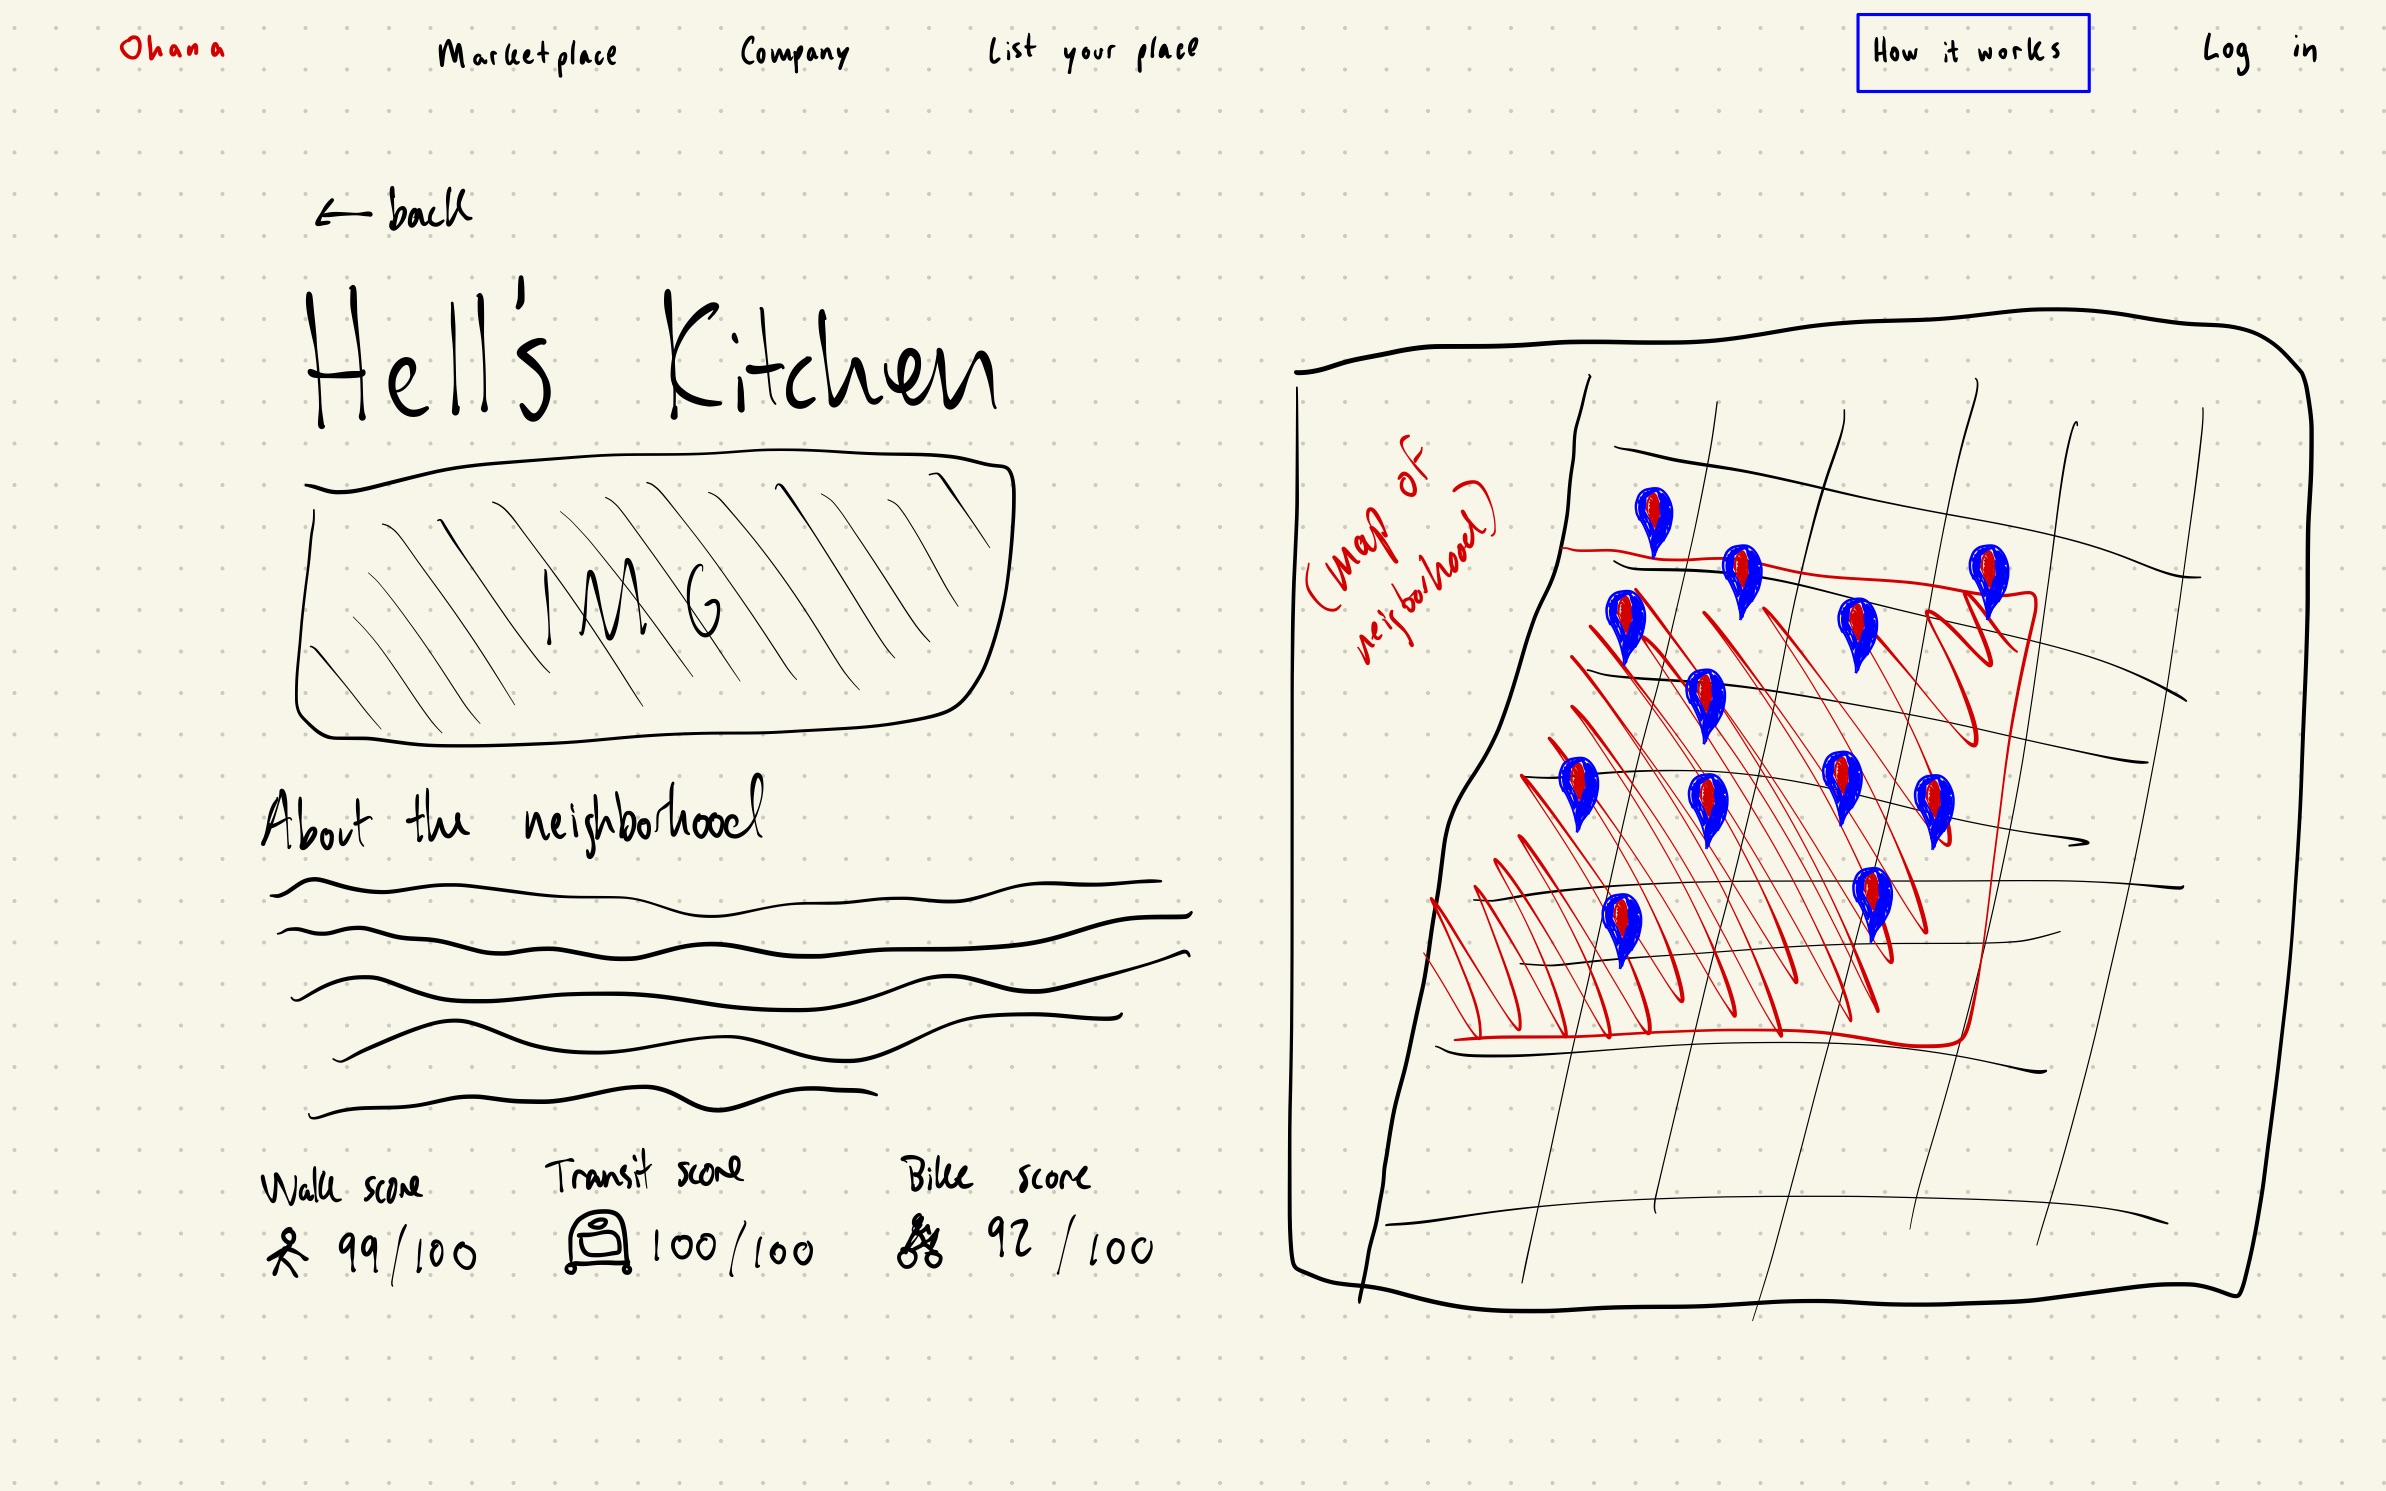 Ohana
Marketplace
Company
List your place
How it works
Log in
← back
Hell's Kitchen
IMG
About the neighborhood
Walk score
99/100
Transit score
100/100
Bike score
92/100
(map of
neighborhood)